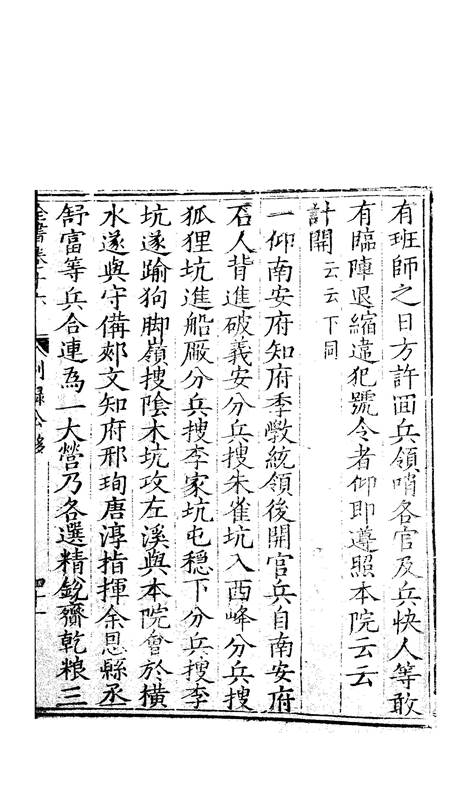 有班師之日方許回兵領哨各官及兵快人等敢
有臨陣退縮違犯號令者仰即遵照本院云云
計開云云下同
一仰南安府知府季斆統領後開官兵自南安府
石人背進破義安分兵搜朱雀坑入西峰分兵搜
狐狸坑進船厰分兵搜李家坑屯穩下分兵搜李
坑遂踰狗脚嶺搜陰木坑攻左溪與本院會於橫
水遂與守備郟文知府邢珣唐淳指揮余恩縣丞
舒富等兵合連為一大營乃各選精銳齎乾粮三
全書卷十六 別錄公移